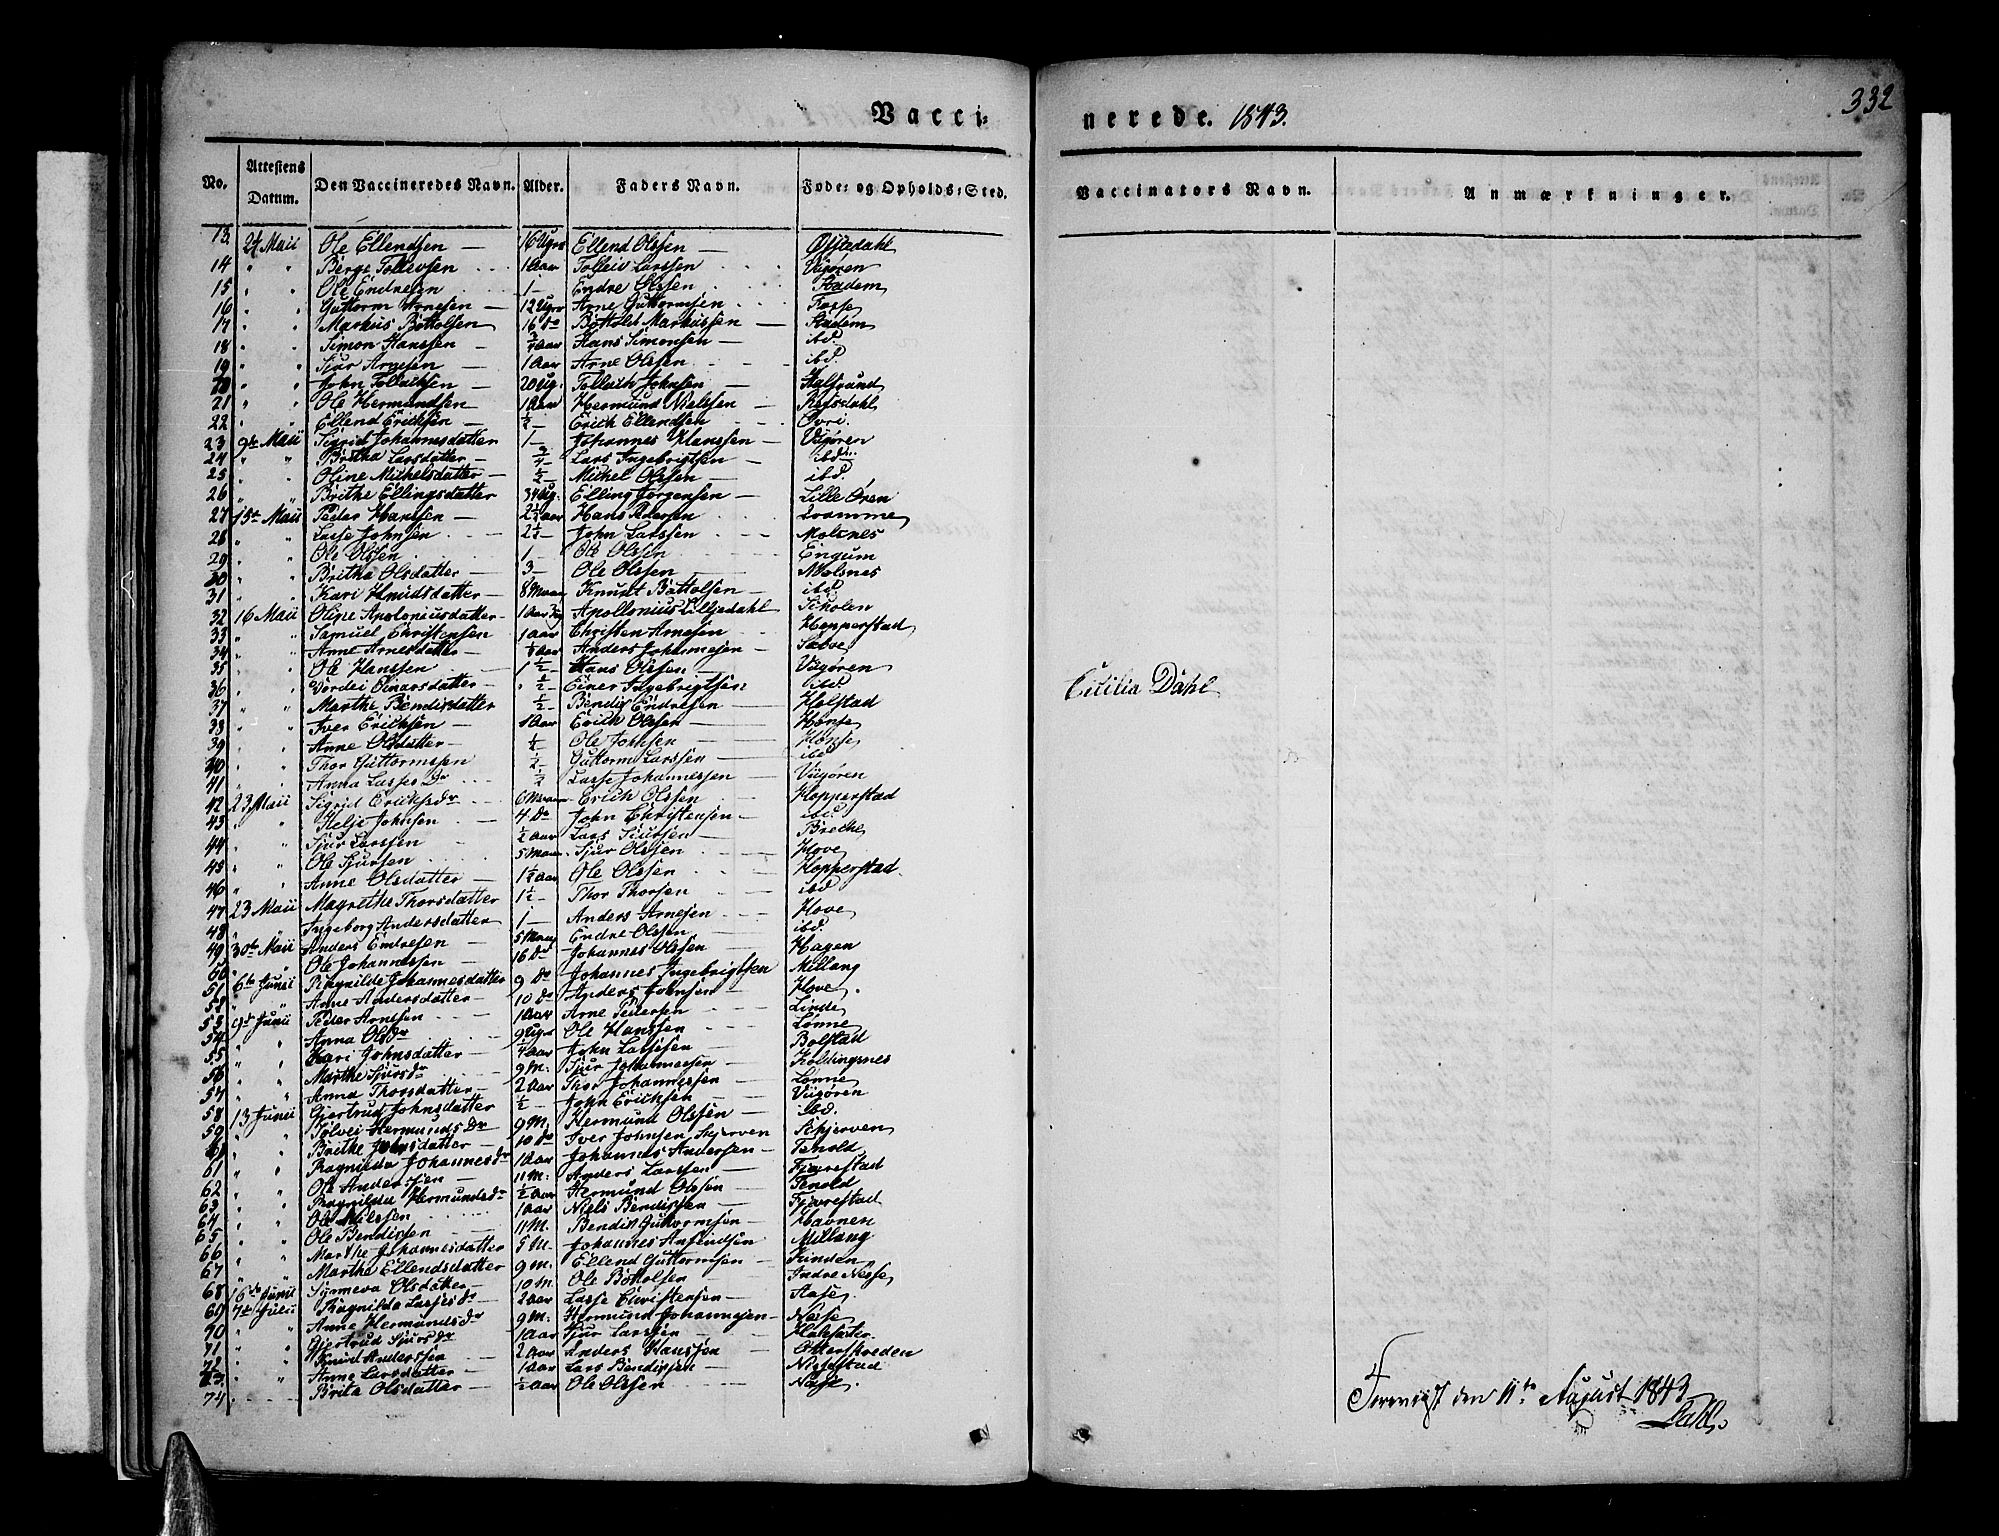 Vacci-
nerede. 1843.
332
No. Attestens Datum. Den Vaccineredes Navn. Alder. Faders Navn. Føde- og Opholds-Sted. Vaccinators Navn. Anmærkninger.
13. Maii Ole Ellendsen — 16 Ugr Ellend Olssen —
14 " " Berge Tollevsen 1 Aar Tolleiv Larssen Vigøren
15 " " Ole Endresen 1 — Endre Olssen Stadem
16 " " Guttorm Arnesen — 12 Ugr Arne Guttormsen Fosse
17 " " Markus Bottolsen 16 do Bottolf Markussen — Stadem
18 " " Simon Hanssen — 3/4 Aar Hans Simonsen — ibd.
19 " " Sjur Arnesen — 1 Aar Arne Olssen ibd.
20 " " John Tolleichsen — 20 Ug. Tolleich Johnsen —
21 " " Ole Hermundsen 1 Aar Hermund Nielssen — Refsdahl
22 " Ellend Erichsen — 1/2 — Erich Ellendsen — Ovri
23 9de Maii Sigrid Johannesdatter 1 — Johannes Hanssen — Vigøren
24 " " Britha Larsdatter — 3/4 — Lars Ingebrigtsen — ibd.
25 " Oline Mickelsdatter — 1/2 — Mickel Olssen — ibd.
26 " " Brithe Ellingsdatter 34 Ug. Elling Jørgensen — Lille Øren
27 15de Maii Peder Hanssen — 2 1/2 Aar Hans Pedersen Framme
28 " " Lasse Johnsen — 2 1/2 — John Larssen Molsnes
29 " " Ole Olssen 1 — Ole Olssen Engum
30 " " Brithe Olsdatter — 3 — Ole Olssen — Molsnes
31 " " Kari Knudsdatter — 8 Maan Knudt Bottolsen — ibd
32 16 Maii Oline Apoloniusdatter 1 Aar Apollonius Lilljedahl Scholen
33 " " Samuel Christensen 1 Aar Christen Arnesen Hopperstad
34 " " Anne Arnesdatter — Anders Johannesen — Sæbve
35 " " Ole Hanssen 1 1/2 — Hans Olssen — Vigøren
36 " " Dordei Einarsdatter — 1/2 — Einer Ingebrigtsen ibd.
37 " " Marthe Bendixdatter 1/2 — Bendix Endresen — Holstad
38 " " Iver Erichsen — 1 Aar Erich Olssen — Hønse
39 " " Anne Olsdatter — Ole Johnsen — Hønse
40 " " Thor Guttormssen 1/2 — Guttorm Larssen — ibd
41 " " Anna Lasses Dr 1/2 Lasse Johannessen — Vigøren
42 23 Maii Sigrid Erichsdr 6 Maaner Erich Olssen — Hopperstad
43 " " Helje Johnsen 4 Do John Christensen — ibd.
44 " " Sjur Larssen — 1/2 Aar Lars Siurssen — Brecke
45 " " Ole Sjursen 5 Maan. Sjur Olssen Hove
46 " " Anne Olsdatter — 1 1/2 Aar Ole Olssen Hopperstad.
47 23 Maii Magrethe Thorsdatter 1 1/2 — Thor Thorsen — ibd
48 " Ingeborg Andersdatter 1 — Anders Arnesen Hove
49 30te Maii Anders Endresen — 5 Maan Endre Olssen — ibd.
50 " " Ole Johannessen — 16 Do Johannes Olssen Hagen
51 6te Junii Ragnilde Johannesdatter 9 Do Johannes Ingebrigtsen Millang
52 " " Anne Andersdatter — 10 Do Anders Johnsen — Hove.
53 9de Junii Peder Arnesen — 1 Aar Arne Pedersen Linde
54 " " Anna Olsdr 9 Ugr Ole Hanssen Lønne
55 " " Kari Johnsdatter — John Lassesen — Bolstad
56 " " Marthe Sjursdr 9 M. Sjur Johannessen Holdingsnes
57 " " Anna Thorsdatter — 2 Aar Thor Johannessen Lønne
58 13 Junii Gjertrud Johnsdatter 1/2 — John Erichsen — Vigøren
59 " " Sølvei Hermunds Dr 9 M. Hermund Olssen — ibd.
" " Brithe Johnsdatter — 10 Do Iver Johnsen, Skjerven Skjerven
61 " " Ragnilda Johannesdr 1 Aar Johannes Andersen — Tenold
62 " " Ole Anderssen — 11 M. Anders Larssen — Fjærestad
63 " " Ragnilda Hermundsdr 1/2 Aar Hermund Olssen — Tenold
64 " " Ole Nilssen 1 Aar Niels Bendixsen — Fjærestad
65 " " Ole Bendixsen 11 M. Bendix Guttormsen — Havnen
66 " " Marthe Johannesdatter 5 M. Johannes Anfindsen Millang
67 " " Martha Ellendsdatter 9 M. Ellend Guttormsen — Hunden
68 16de Junii Synneva Olsdatter — 10 M. Ole Bottolsen — Indre Nesse
69 7de Julii Ragnilda Lassesdr 2 Aar Lasse Christensen — Aase
70 " " Anne Hermundsdr 9 M. Hermund Johannesen — Nesse
71 " " Gjertrud Sjursdr 1 Aar Sjur Larssen —
72 " " Knud Anderssen 2 Aar Anders Hanssen — Otterskreden
73 " " Anne Larsdatter — 1 Aar Lars Bendixsen —
74 Brita Olsdatter — 1/2 Aar Ole Olssen — Nesse.
Cicilia Dahl
Forevist den 11te August 1843
Dahl.